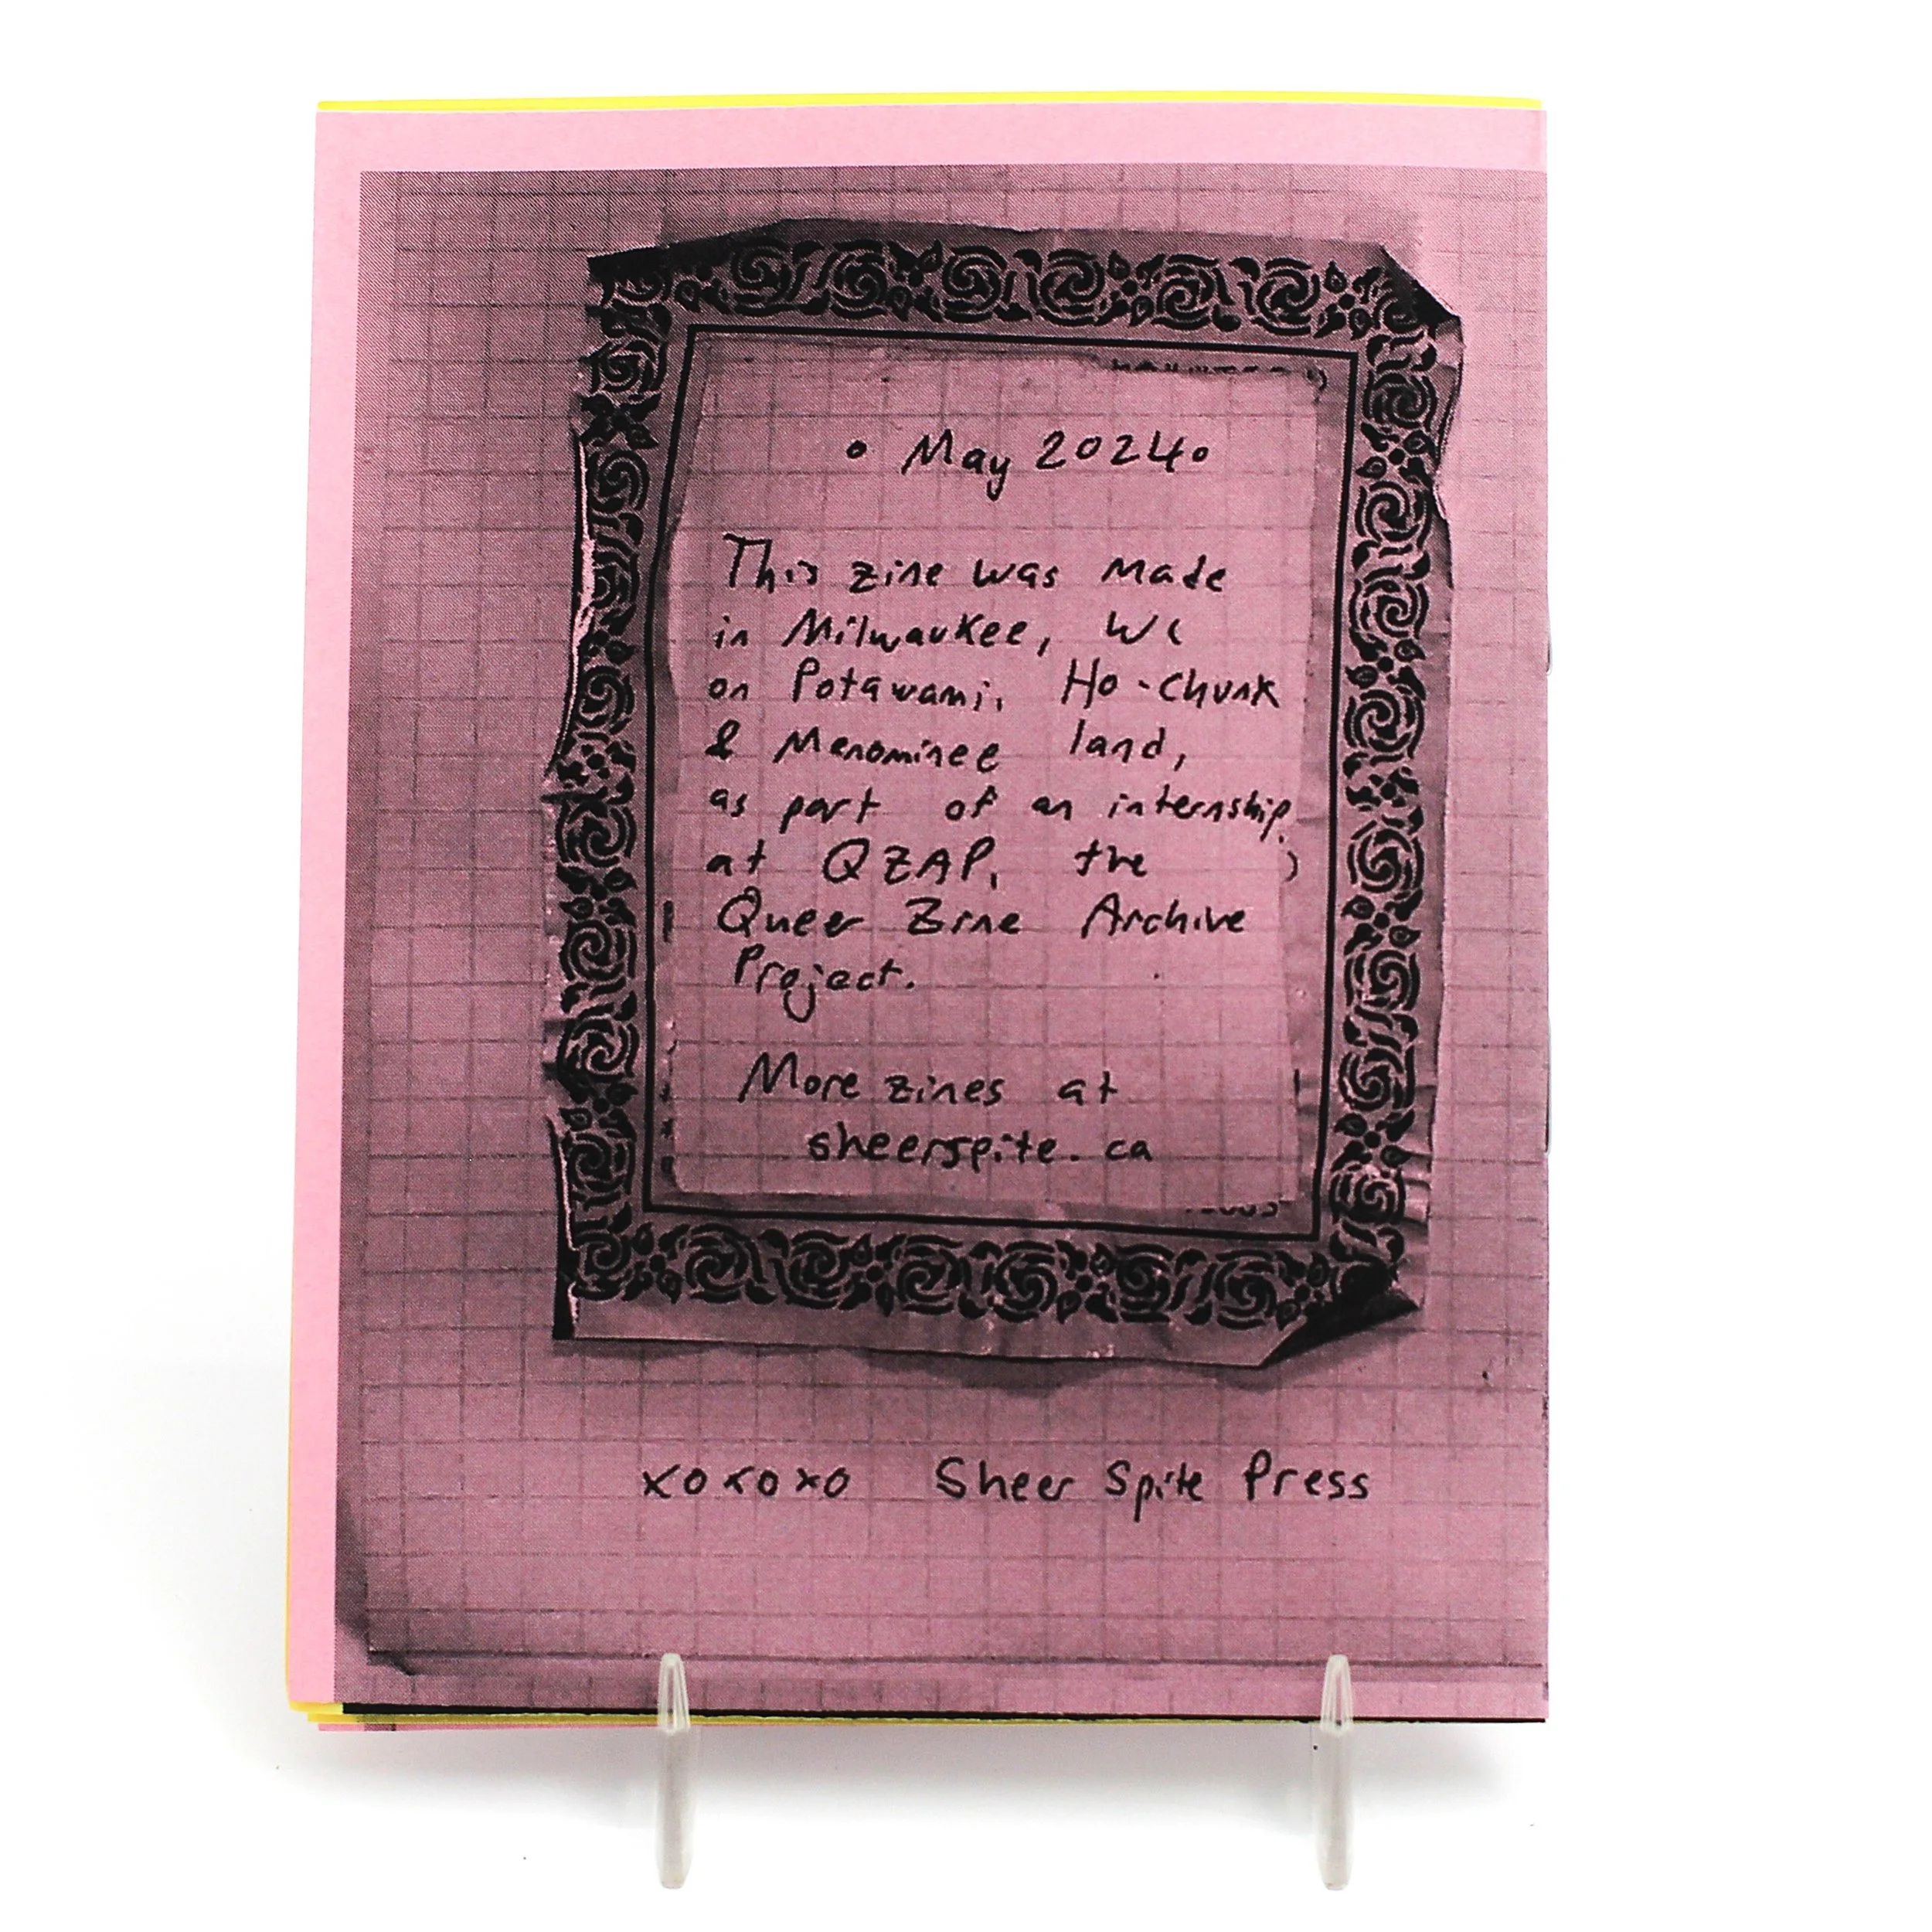 • May 2024 •
This zine was made
in Milwaukee, WI
on Potawami, Ho-Chunk
& Menominee land,
as part of an internship
at QZAP, the
Queer Zine Archive
Project.
More zines at
sheerspite.ca
xoxoxo Sheer Spite Press